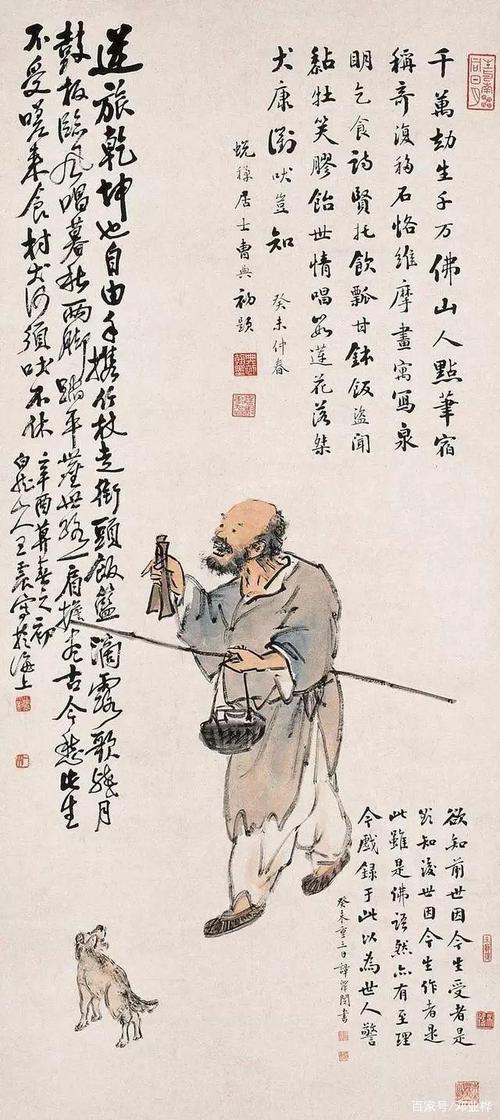 千萬劫生千万佛山人點筆宿
稱奇復稿石恪維摩畫寓寫泉
明乞食詩賢托飲瓢甘鉢飯盜聞
黏牡笑膠飴世情唱蓮花落桀
犬康衢吠豈知 癸未仲春
居士曹典初題
逆旅乾坤也自由手攜竹杖走街頭飯籃滴露歌殘月
鼓板臨風唱暮秋兩脚踏平塵世路一肩擔盡古今愁此生
不受嗟来食村犬何須吠不休 辛酉莫春之初
白龍山人王震寫於海上
欲知前世因今生受者是
欲知後世因今生作者是
此雖是佛語然亦有至理
今戲録于此以為世人警
癸未重三日譚澤闓書
百家号/邓业桦